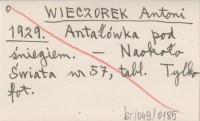 WIECZOREK Antoni
1929. Antałówka pod
śniegiem. – Naokoło
Świata nr 57, tabl. Tylko
fot.
br/049/0185